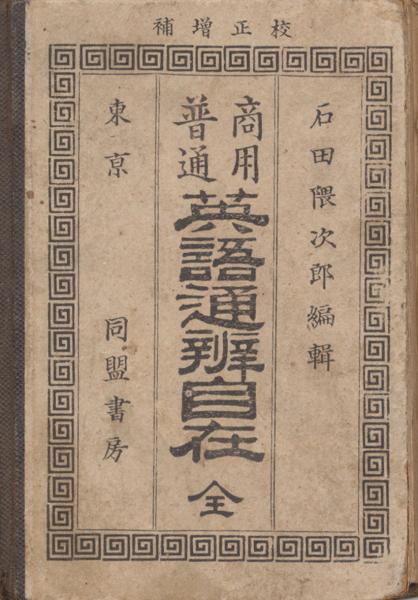 校正增補
石田隈次郎編輯
商用
普通
英語通辨自在 全
東亰 同盟書房